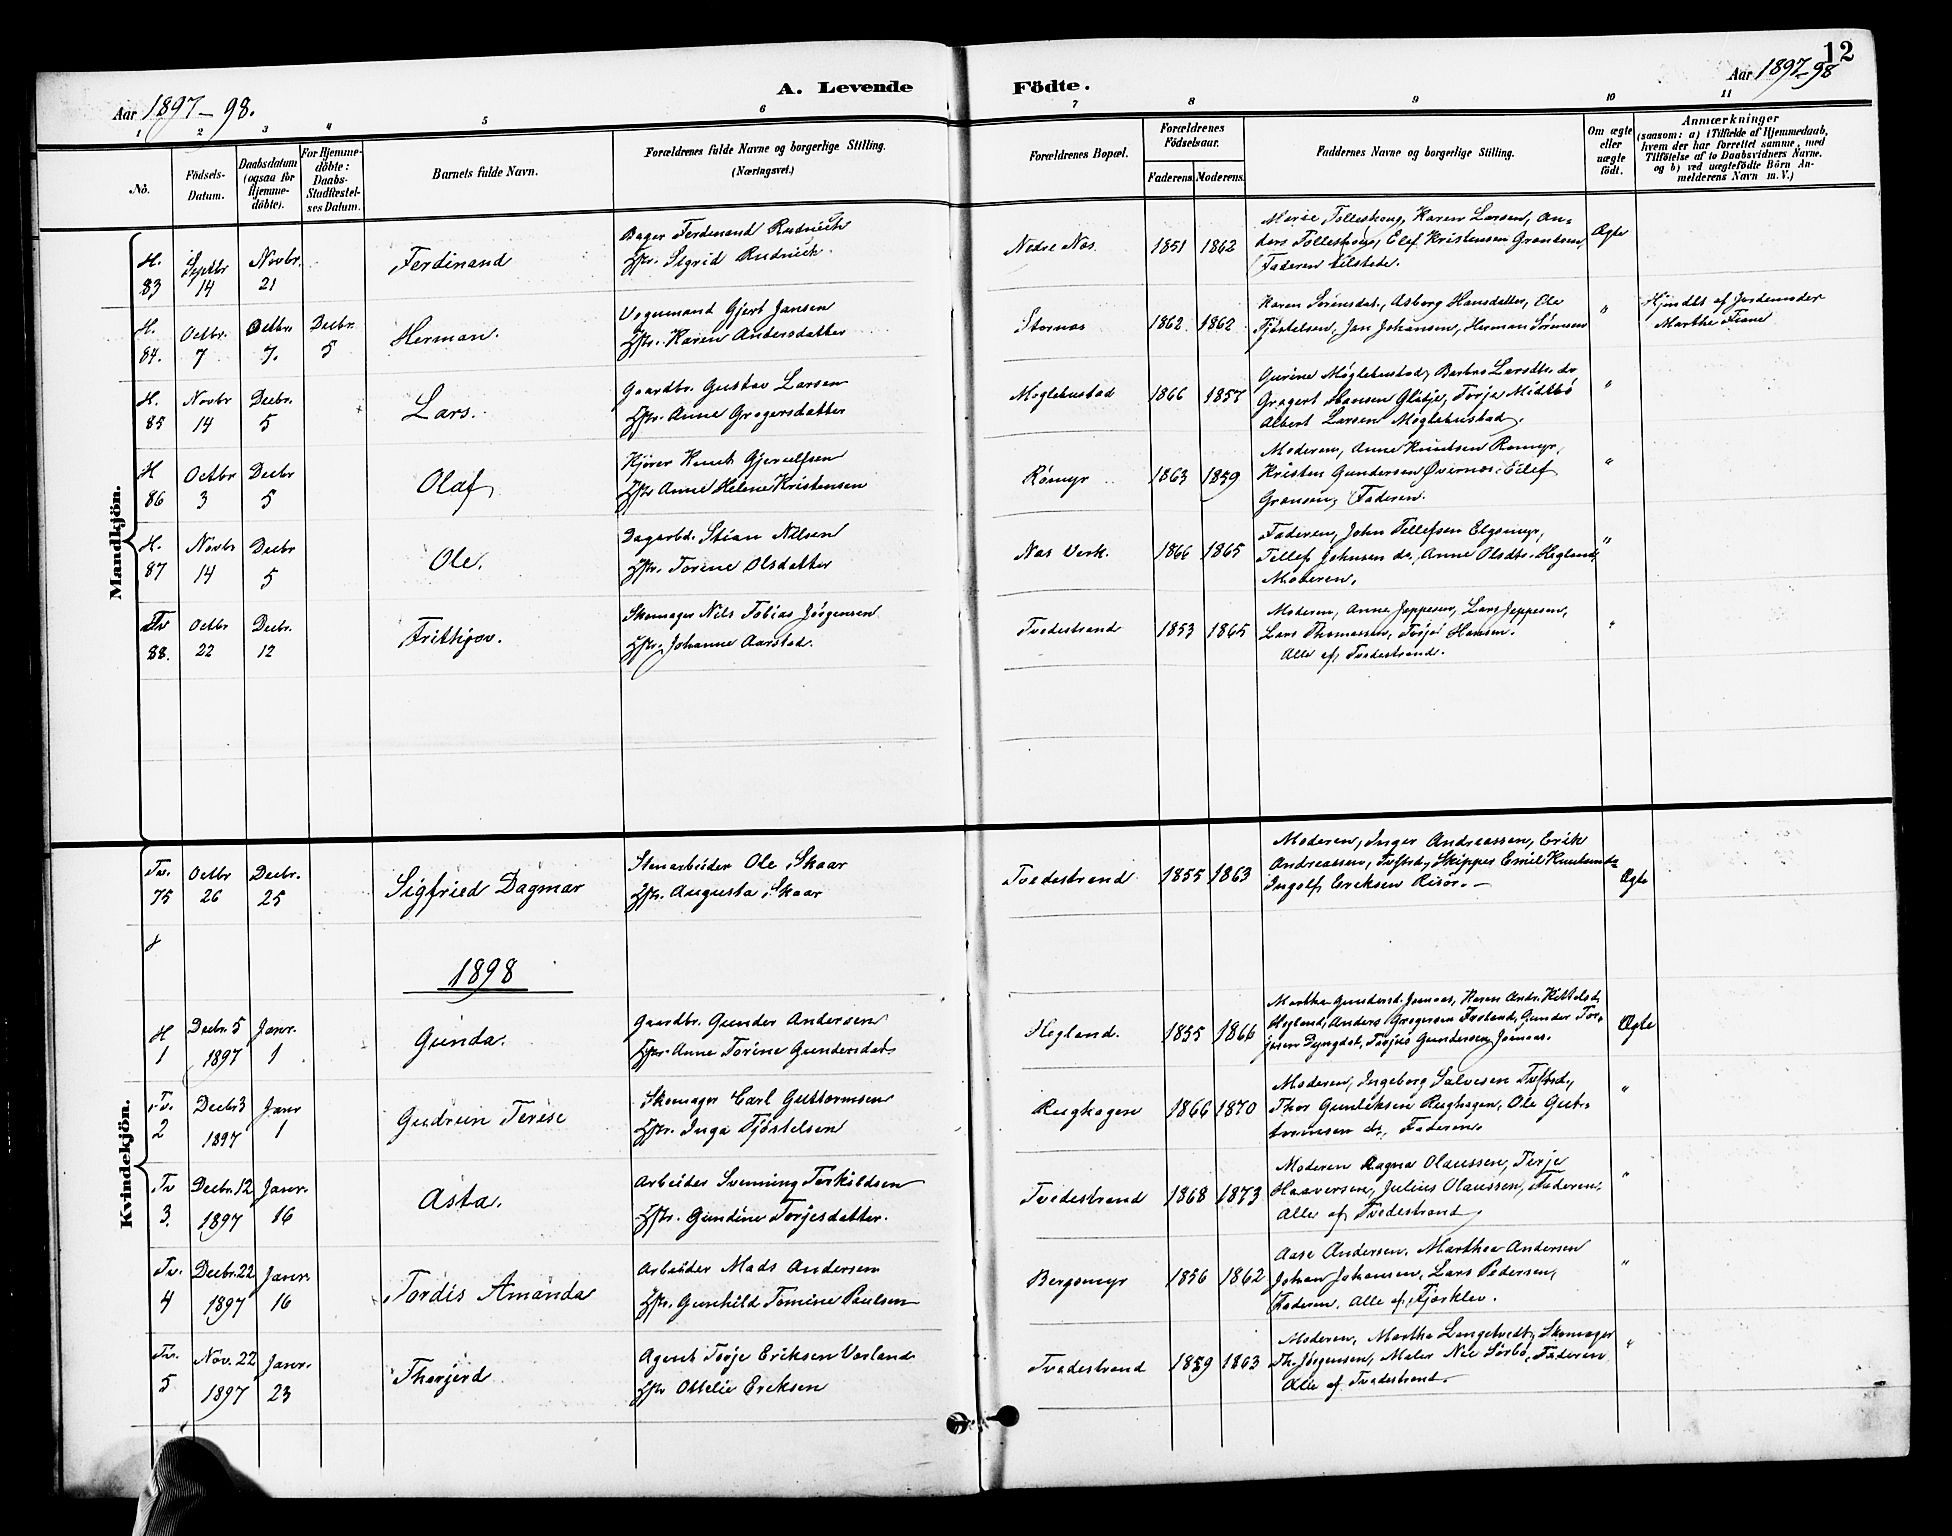 12
Aar 1897-98.
A. Levende Födte.
Aar 1897-98
1 2 3 4 5 6 7 8 9 10 11
No.
Födsels-Datum.
Daabsdatum (ogsaa for Hjemme-döbte).
For Hjemme-döbte: Daabs-Stadfæstel-ses Datum.
Barnets fulde Navn.
Forældrenes fulde Navne og borgerlige Stilling.
(Næringsvei.)
Forældrenes Bopæl.
Forældrenes Födselsaar.
Faderens. Moderens.
Faddernes Navne og borgerlige Stilling.
Om ægte eller uægte födt.
Anmærkninger
(saasom: a) i Tilfælde af Hjemmedaab,
hvem der har forrettet samme, med
Tilföielse af to Daabsvidners Navne.
og b) ved uægtefödte Börn An-
melderens Navn m. V.)
Mandkjön.
H. 83
Septbr 14
Novbr. 21
Ferdinand
Bager Ferdinand Rudnick
Hstr. Sigrid Rudnick.
Nedre Nes
1851 1862
Marie Tolleskoug, Karen Larsen, An-
ders Tolleskoug, Elef Kristensen
Faderen tilstede.
Ægte
H. 84.
Octbr. 7
Octbr. 7.
Decbr. 5
Herman.
Vognmand Gjert Jansen
Hstr. Karen Andersdatter
Stornes
1862 1862
Karen Sørensdat., Asborg Hansdatter, Ole
Tjøstelsen, Jan Johansen, Herman Sørensen
"
Hjmdbt af Jordemoder
Marthe Fiane
H. 85
Novbr 14
Decbr. 5
Lars.
Gaardbr. Gustav Larsen
Hstr. Anne Gregersdatter
Møglehustad
1866 1857
Gurine Møglehustad, Barbro Larsdtr. do
Gregert Hansen Glidje, Torje Midtbø
Albert Larsen Møglehustad.
"
H 86
Octbr 3
Decbr 5
Olaf
Kjører Knut Gjerulfsen
Hstr Anne Helene Kristensen
Rømyr
1863 1859
Moderen, Anne Knutsen Romyr,
Kristen Gundersen Øvernes, Eilef
Faderen.
"
H. 87
Novbr 14
Decbr 5
Ole.
Dagarbd. Stian Nilsen
Hstr. Torine Olsdatter
Nes Verk.
1866 1865
Faderen, John Tellefsen Elgsmyr,
Tellef Johnsen do, Anne Olsdtr. Hegland,
Moderen.
"
Tv 88.
Octbr 22
Decbr. 12
Frithjov.
Skomager Nils Tobias Jørgensen
Hstr. Johanne Aarstad.
Tvedestrand
1853 1865
Moderen, Anne Jeppesen, Lars Jeppesen,
Lars Thomassen, Torje Hansen.
Alle af Tvedestrand.
"
Kvindekjön.
Tv. 75
Octbr 26
Decbr. 25
Sigfried Dagmar
Stenarbeider Ole Skaar
Hstr. Augusta Skaar
Tvedestrand
1855 1863
Moderen, Inger Andreassen, Erik
Andreassen, Tvstrd, Skipper Emil Knutsen
Ingolf Eriksen Risør. -
Ægte
1898
H 1
Decbr. 5 1897
Janr. 1
Gunda.
Gaardbr. Gunder Andersen
Hstr. Anne Torine Gundersdat.
Hegland.
1855 1866
Marthe Gundersd. Joenaas, Karen Andr. Kittelsd.
Hegland, Anders Gregersen Frøland, Gunder Tor-
jesen Dyngdal, Torjus Gundersen Joenaas.
Ægte
Tv. 2
Decbr 3 1897
Janr 1
Gudrun Terese
Skomager Carl Guttormsen
Hstr. Inga Tjøstelsen
Rughagen
1866 1870
Moderen, Ingeborg Salvesen Tvstrd,
Thor Gunleiksen Rughagen, Ole Gut-
tormsen do, Faderen.
"
Tv 3.
Decbr. 12 1897
Janr. 16
Asta.
Arbeider Svenning Terkildsen
Hstr. Gundine Torjesdatter.
Tvedestrand
1868 1873
Moderen Ragna Olaussen, Terje
Haaversen, Julius Olaussen, Faderen,
Alle af Tvedestrand.
"
Tv. 4
Decbr. 22 1897
Janr. 16
Tordis Amanda
Arbeider Mads Andersen
Hstr. Gunhild Tomine Paulsen
Bergsmyr
1856 1862
Aase Andersen, Marthea Andersen
Johan Johansen, Lars Pedersen,
Faderen. Alle af Fjærklev.
"
Tv. 5
Nov. 22 1897
Janr. 23
Thorjerd
Agent Torje Eriksen Vorland
Hstr Ottelie Eriksen
Tvedestrand
1859 1863
Moderen, Marthe Langetvedt, Skomager
Th. Jørgensen, Maler Nic Sørbø, Faderen
Alle af Tvedestrand.
"